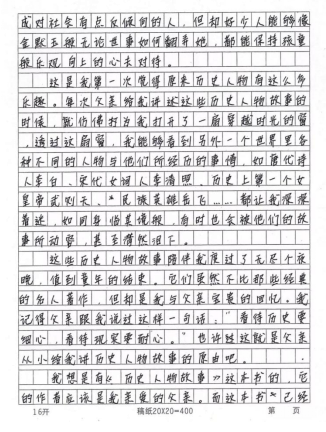 或对社会有点反倾向的人，但却好少人能够像
金默玉般无论世事如何翻弄她，都能保持孩童
般乐观向上的心去对待。
这是我第一次觉得原来历史人物有这么多
乐趣。每次父亲给我讲述这些历史人物故事的
时候，就仿佛打为我打开了一扇穿越时光的窗
，透过这扇窗，我能够看到另外一个世界里各
种不同的人物与他们所经历的事情，如唐代诗
人李白、宋代女词人李清照、历史上第一个女
皇帝武则天、民族英雄岳飞……都让我深深
着迷，如同身临其境般，有时也会被他们的故
事所动容，甚至潸然泪下。
这些历史人物故事陪伴我度过了无尽个夜
晚，直到童年的结束。它们虽然不比那些经典
的名人著作，但却是我与父亲宝贵的回忆。我
记得父亲跟我说过这样一句话：“看待历史要
细心，看待现实要耐心。”也许这就是父亲
从小给我讲历史人物故事的原由吧。
我想是有《历史人物故事》这本书的，它
的作者应该是我亲爱的父亲。而这本书已经
16开 稿纸20X20=400 第 页